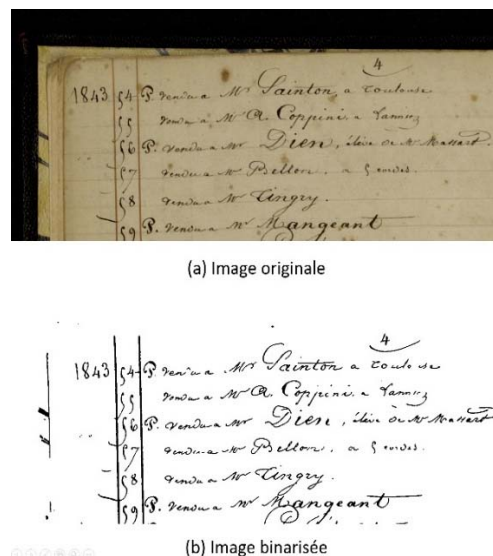 4
1843 54 P. vendu a Mr Sainton a Toulouse
55 vendu a Mr A. Coppini a
56 P. vendu a Mr Dien, élève de Mr Massart
57 vendu a Mr Bellon, a
58 vendu a Mr Tingry.
59 P. vendu a Mr Mangeant
(a) Image originale
4
1843 54 P. vendu a Mr Sainton a Toulouse
55 vendu a Mr A. Coppini a
56 P. vendu a Mr Dien, élève de Mr Massart
57 vendu a Mr Bellon, a
58 vendu a Mr Tingry.
59 P. vendu a Mr Mangeant
(b) Image binarisée